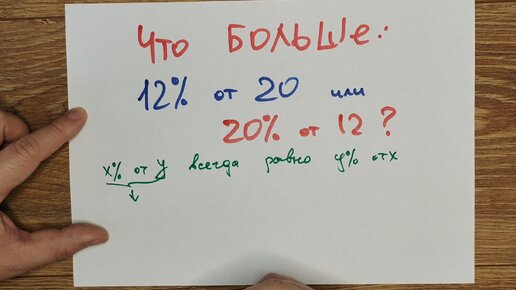 Что БОЛЬШЕ:
12% от 20 или
20% от 12 ?
x% от y всегда равно y% от x